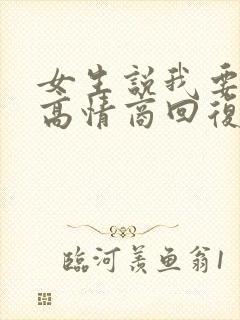 女生說我要
高情商回復
臨河羨魚翁1